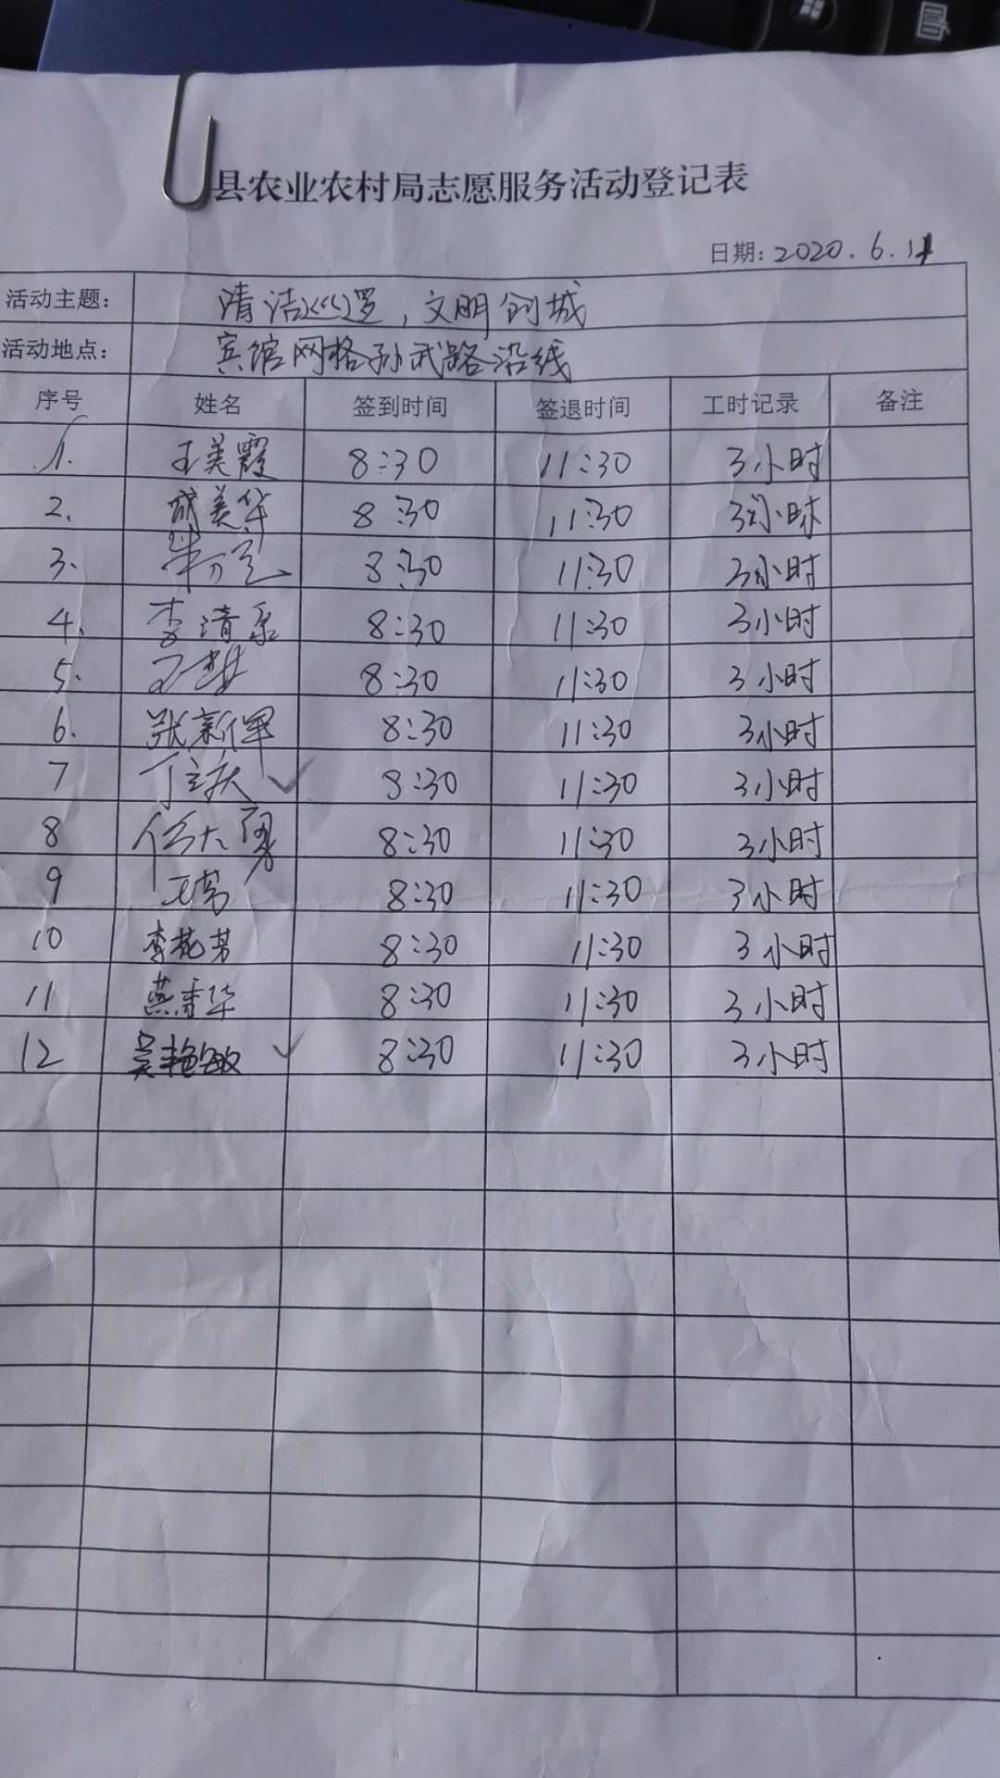 县农业农村局志愿服务活动登记表
日期: 2020.6.11
活动主题: 清洁巡逻,文明创城
活动地点: 宾馆网格孙武路沿线
序号 姓名 签到时间 签退时间 工时记录 备注
1. 王美霞 8:30 11:30 3小时
2. 成美华 8:30 11:30 3小时
3. 8:30 11:30 3小时
4. 李清泉 8:30 11:30 3小时
5. 8:30 11:30 3小时
6. 张新军 8:30 11:30 3小时
7 8:30 11:30 3小时
8 任大勇 8:30 11:30 3小时
9 8:30 11:30 3小时
10 李花芳 8:30 11:30 3小时
11 燕秀华 8:30 11:30 3小时
12 吴艳敏 8:30 11:30 3小时